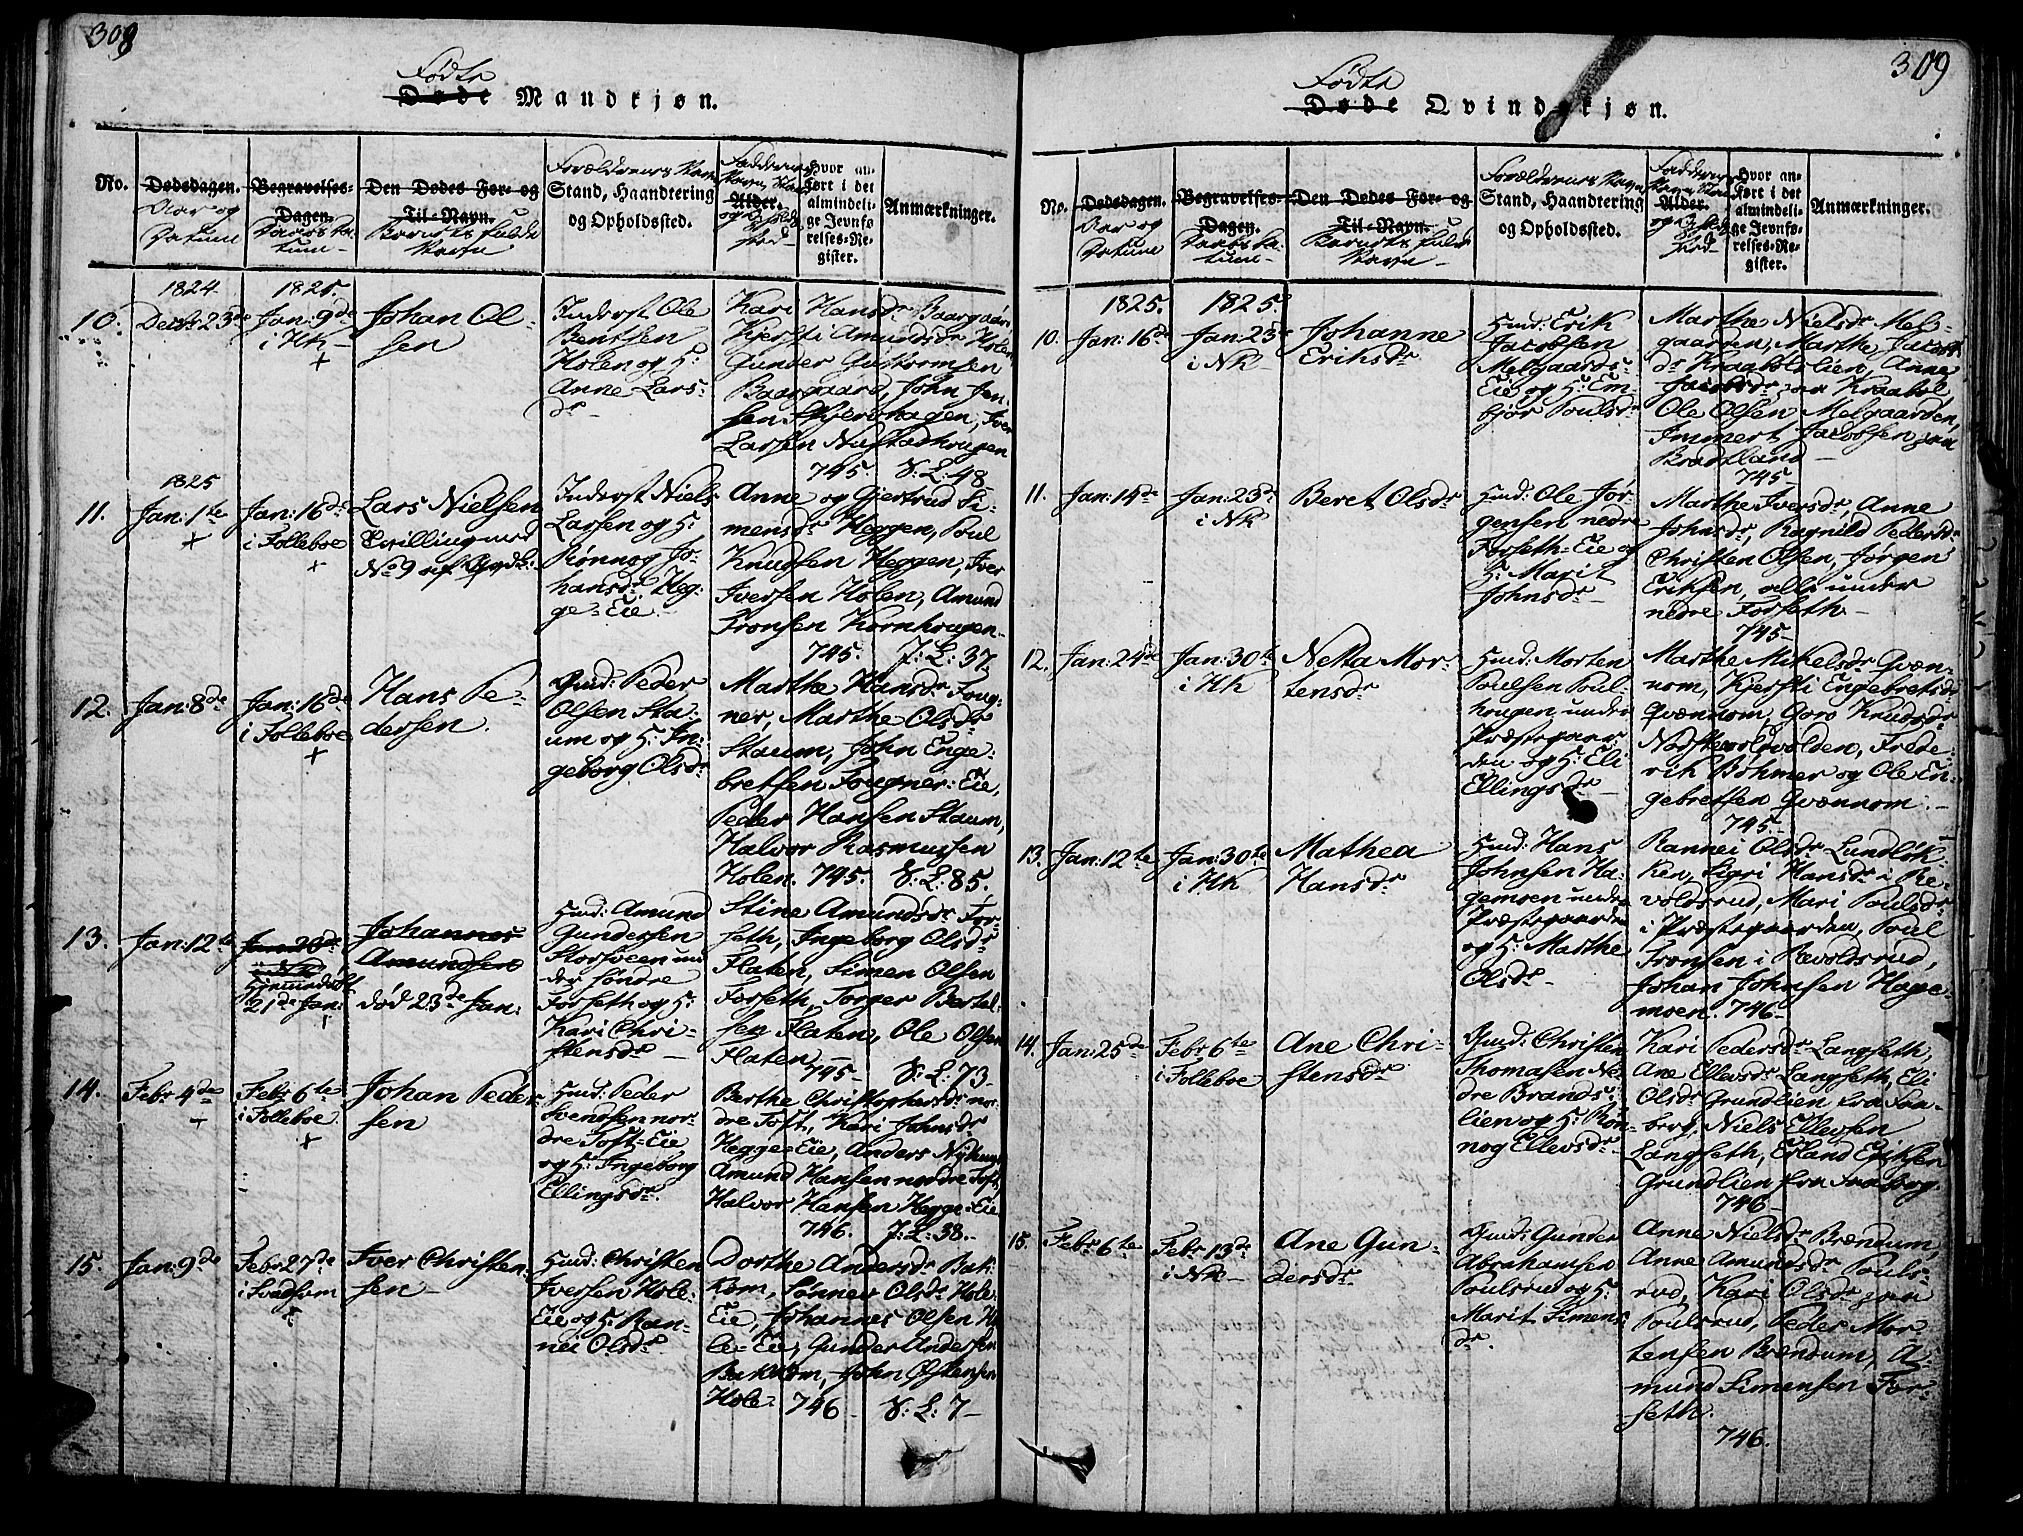 308
Födte
Døde Mandkjøn.
No.
Dødsdagen.
Aar og
Datum
Begravelses-
Dagen.
Daabs Da-
tum
Den Dødes For- og
Til-Navn.
Barnets fulde
Navn
Forældrenes Navn
Stand, Haandtering
og Opholdssted.
Faddernes
Navn, Stand
Alder.
og Opholds
sted
Hvor an-
ført i det
almindeli-
ge Jevnfø-
relses-Re-
gister.
Anmærkninger.
10.
1824
Decbr 23de
1825.
Jan: 9de
i HK
+
Johan Ol-
sen
Inderst Ole
Bentsen
Holen og H:
Anne Lars-
dr
Kari Hansdr Baargaard
Kjersti Amundsdr Holen,
Gunder Guttormsen
Baargaard, John Jen-
sen Skjerdhagen, Iver
Larsen Nustadhougen
745. V: L: 48
11.
1825
Jan: 1te
+
Jan: 16de
i Folleboe
+
Lars Nielsen
Tvilling med
No 9 af
Inderst Niels
Larsen og H:
Rønnog Jo-
hansdr Heg-
ge-Eie
Anne og Gjertrud Si-
mensdr Heggen, Poul
Knudsen Heggen, Iver
Iversen Holen, Amund
Tronsen Kornhougen.
745. J: L: 37.
12.
Jan: 8de
Jan: 16de
i Folleboe
+
Hans Pe-
dersen.
Gmd: Peder
Olsen Sta-
um og H: In-
geborg Olsdr
Marthe Hansdr Foug-
ner, Marthe Olsdr
Staum, John Enge-
bretsen Fougner-Eie,
Peder Hansen Staum,
Halvor Rasmussen
Holen. 745. V: L: 85.
13.
Jan: 12te
Jan: 26de
i NK
Hjemmedøbt
21de Jan:
Johannes
Amundsen
død 23de Jan:
Hmd: Amund
Gundersen
Storsveen un-
der søndre
Forseth og H:
Kari Chri-
stensdr
Stine Amundsdr For-
seth, Ingeborg Olsdr
Flaten, Simen Olsen
Forseth, Torger Bertel-
sen Flaten, Ole Olsen
Flaten
745 V: L: 73
14.
Febr 4de
+
Febr 6te
i Folleboe
+
Johan Peder-
sen
Hmd: Peder
Svendsen nor-
dre Toft-Eie
og H: Ingeborg
Ellingsdr
Berthe Christophersdr nor-
dre Toft, Kari Johnsdr
Hegge-Eie, Anders Nyhuus
Amund Hansen nordre Toft,
Halvor Hansen Hegge-Eie
746. J: L: 38.
15.
Jan: 9de
Febr 27de
i Svadsum
+
Iver Christen-
sen
Hmd: Christen
Iversen Hole-
Eie og H: Ran-
nei Olsdr
Dorthe Andersdr Bak-
kom, Sønnev Olsdr Hole-
Eie, Johannes Olsen Ho-
le-Eie, Gunder Andersen
Bakkom, John Østensen
Hole- 746 V: L: 7
309
Födte
Døde Qvindekjøn.
No.
Dødsdagen.
Aar og
Datum
Begravelses-
Dagen.
Daabs Da-
tum
Den Dødes For- og
Til-Navn.
Barnets fulde
Navn
Forældrenes Navn
Stand, Haandtering
og Opholdssted.
Faddernes
Navn, Stand
Alder.
og Opholds
sted
Hvor an-
ført i det
almindeli-
ge Jevnfø-
relses-Re-
gister.
Anmærkninger.
10.
1825.
Jan: 16de
1825.
Jan: 23de
i NK
Johanne
Eriksdr
Hmd: Erik
Jacobsen
Melgaards-
Eie og H: Em-
bjør Poulsdr
Marthe Nielsdr Mel-
gaarden, Marthe Jacobs-
dr Kraabølslien, Anne
Jacobsdr paa Kraabøl,
Ole Olsen Melgaarden,
Immert Jacobsen paa
Bradtland
745
11.
Jan: 14de
Jan: 23de
i NK
Beret Olsdr
Hmd: Ole Jør-
gensen nedre
Forseth-Eie og
H: Marit
Johnsdr
Marthe Iversdr, Anne
Johnsdr, Ragnild Pedersdr
Christen Olsen, Jørgen
Eriksen, alle under
nedre Forseth
745
12.
Jan: 24de
Jan: 30te
i HK
Netta Mor-
tensdr
Hmd: Morten
Poulsen Poul-
hougen under
Præstegaar-
den og H: Eli
Ellingsdr
Marthe Mikelsdr Qvæn-
nom, Kjersti Engebretsdr
Qvænnom, Goro Knudsdr
Nordstevoldvolden, Frede-
rik Bøhmer og Ole En-
gebretsen Qvænnom.
745
13.
Jan: 12te
Jan: 30te
i HK
Mathea
Hansdr
Hmd: Hans
Johnsen Ha-
gemoen under
Præstegaarden
og H: Marthe
Olsdr
Rannei Olsdr Lundløk-
ken, Sigri Hansdr i Re-
voldsrud, Mari Poulsdr
i Præstegaarden, Poul
Tronsen i Revoldsrud,
Johan Johnsen Hage-
moen. 746
14.
Jan: 25de
Febr 6te
i Folleboe
Ane Chri-
stensdr
Gmd: Christen
Thomasen Ne-
dre Brands-
lien og H: Røn-
nog Ellevsdr
Kari Pedersdr Langseth,
Ane Ellevsdr Langseth, Eli
Olsdr Grundlien fra Faa-
berg, Niels Ellevsen
Langseth, Erland Eriksen
Grundlien fra Faaberg.
746
15.
Febr 6te
Febr 13de
i NK
Ane Gun-
dersdr
Gmd: Gunder
Abrahamsen
Poulsrud og H:
Marit Simens-
dr.
Anne Nielsdr Brændum,
Anne Amundsdr Pouls-
rud, Kari Olsdr paa
Poulsrud, Peder Mor-
tensen Brændum, A-
mund Simensen For-
seth.
746.